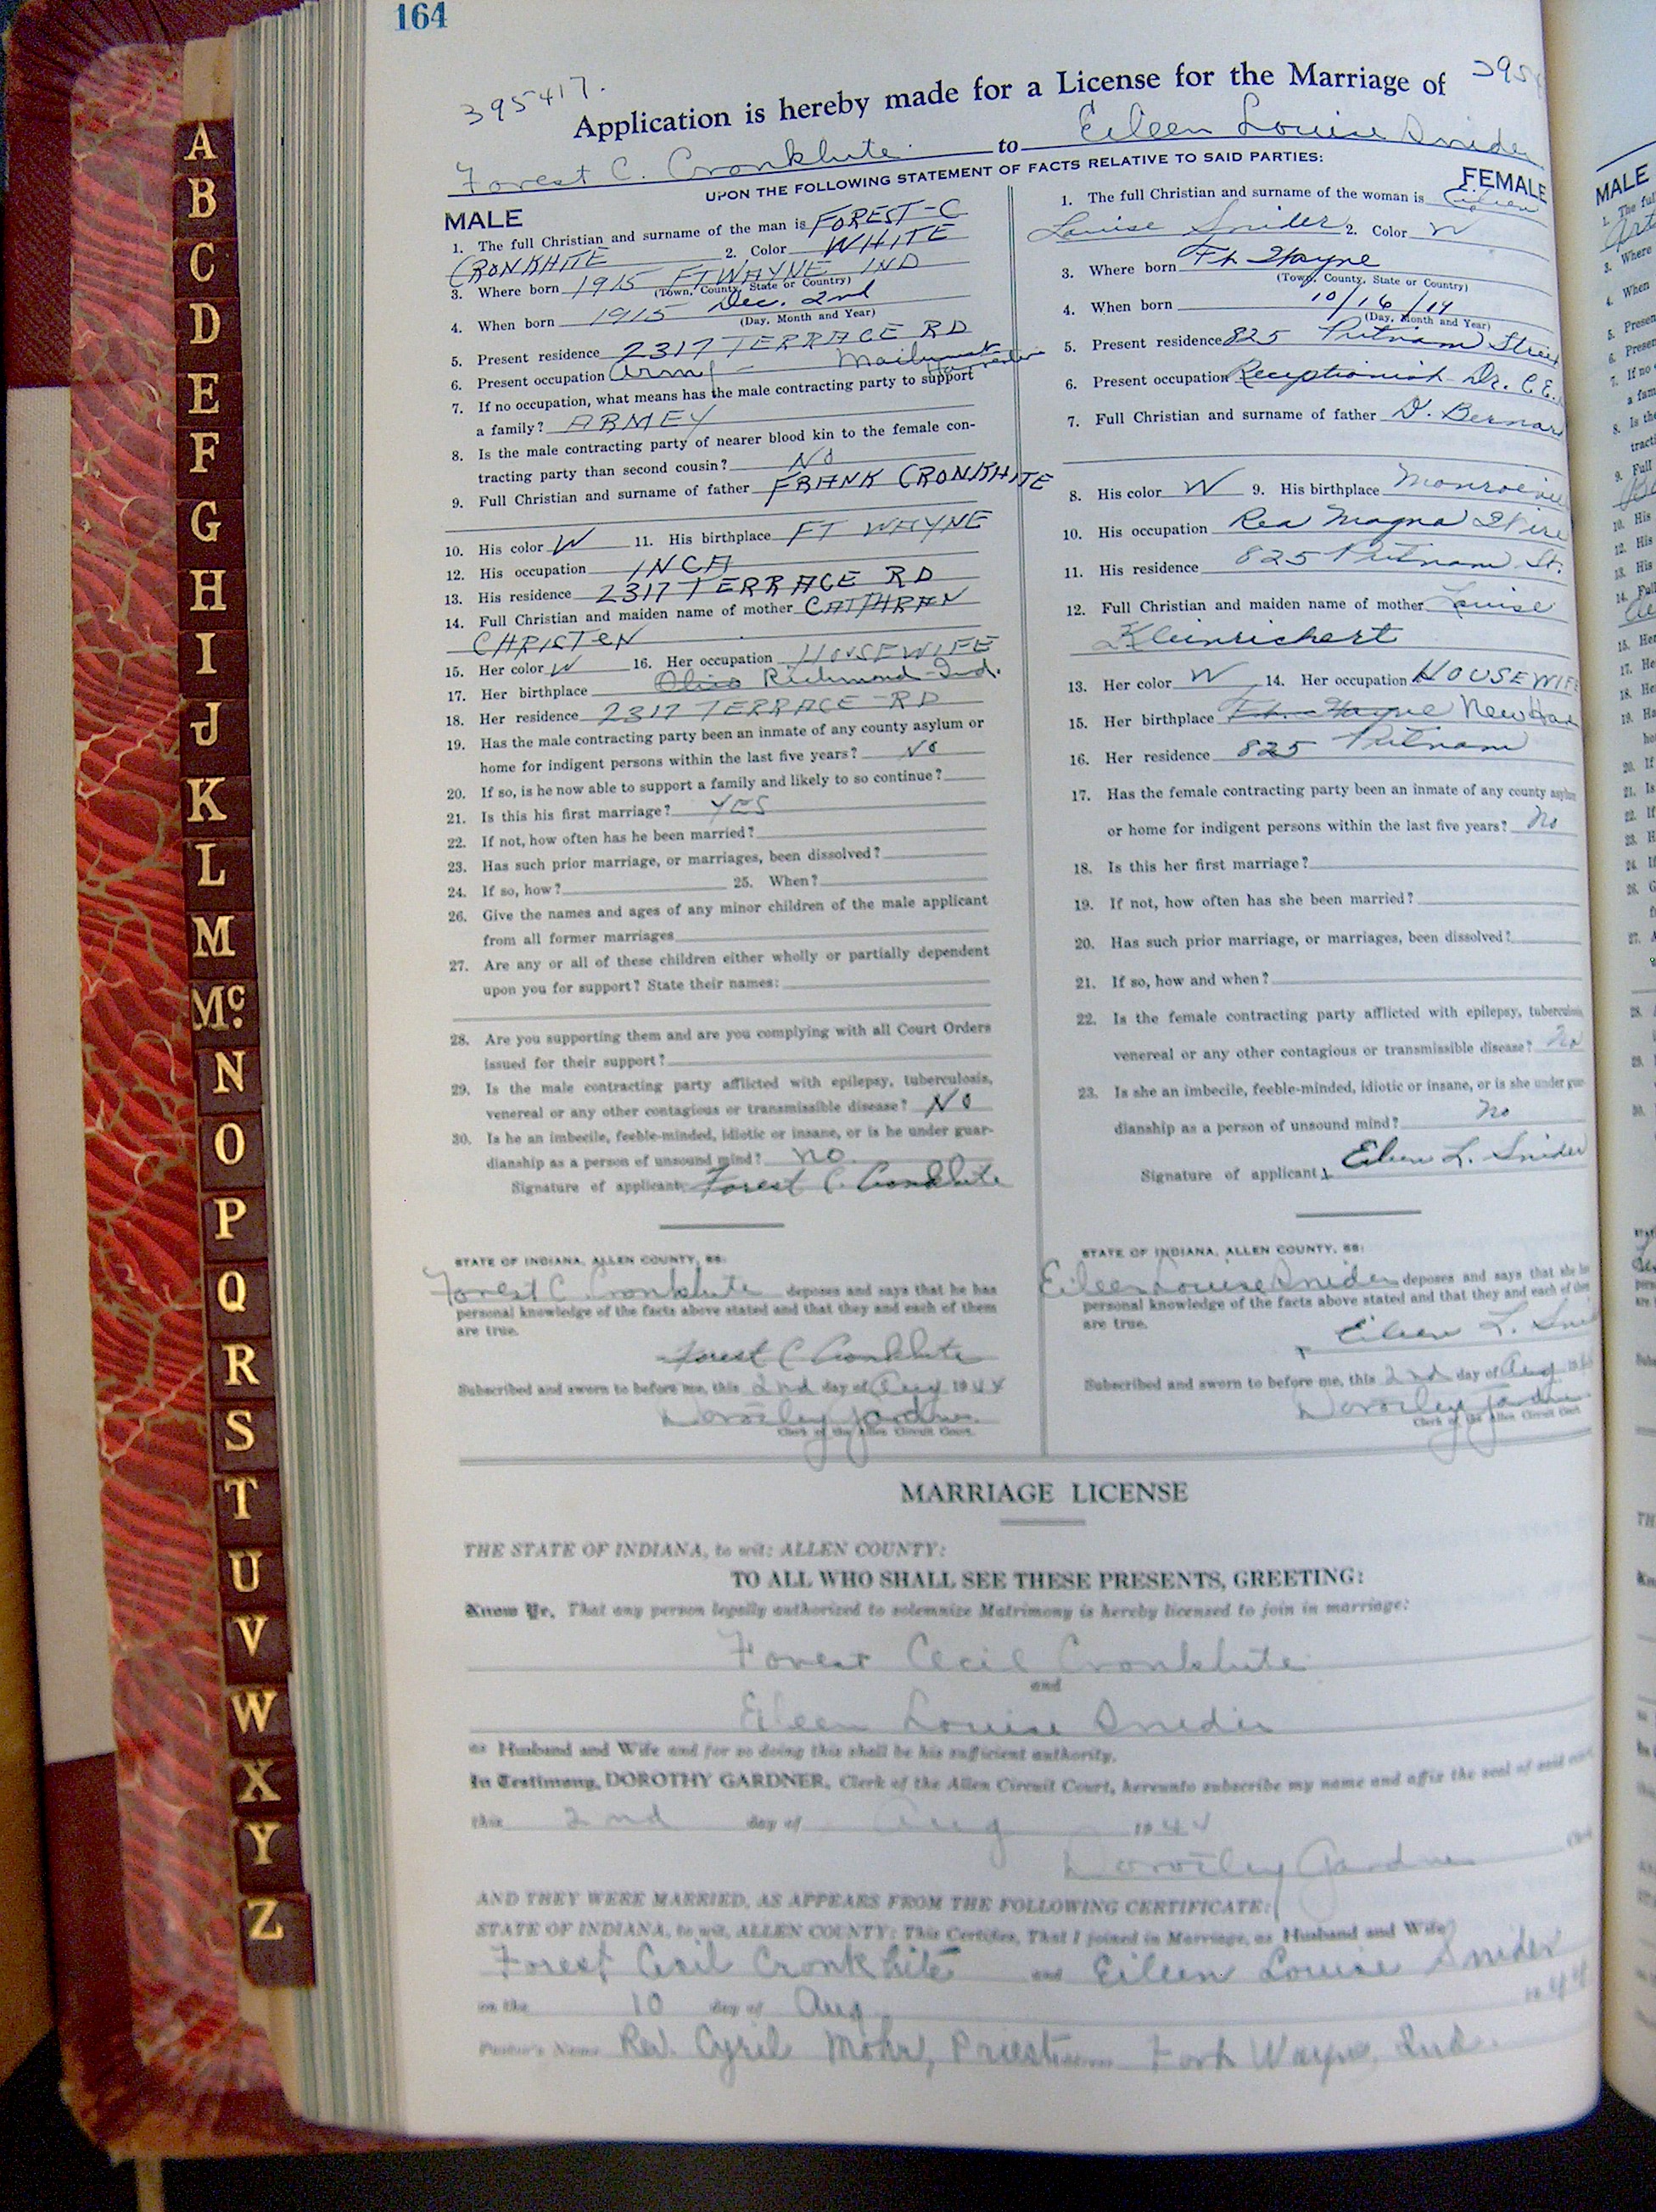 164
395417.
395
Application is hereby made for a License for the Marriage of
Forest C. Cronkhite to Eileen Louise Snider
UPON THE FOLLOWING STATEMENT OF FACTS RELATIVE TO SAID PARTIES:
MALE
1. The full Christian and surname of the man is FOREST-C
CRONKHITE 2. Color WHITE
3. Where born 1915 FT WAYNE IND
(Town, County, State or Country)
4. When born 1915 Dec. 2nd
(Day, Month and Year)
5. Present residence 2317 TERRACE RD
6. Present occupation Army -
7. If no occupation, what means has the male contracting party to support
a family? ARMEY
8. Is the male contracting party of nearer blood kin to the female con-
tracting party than second cousin? NO
9. Full Christian and surname of father FRANK CRONKHITE
10. His color W 11. His birthplace FT WAYNE
12. His occupation INCA
13. His residence 2317 TERRACE RD
14. Full Christian and maiden name of mother CATHRAN
CHRISTEN
15. Her color W 16. Her occupation HOUSEWIFE
17. Her birthplace Ohio Richmond Ind.
18. Her residence 2317 TERRACE-RD
19. Has the male contracting party been an inmate of any county asylum or
home for indigent persons within the last five years? NO
20. If so, is he now able to support a family and likely to so continue?
21. Is this his first marriage? YES
22. If not, how often has he been married?
23. Has such prior marriage, or marriages, been dissolved?
24. If so, how? 25. When?
26. Give the names and ages of any minor children of the male applicant
from all former marriages
27. Are any or all of these children either wholly or partially dependent
upon you for support? State their names:
28. Are you supporting them and are you complying with all Court Orders
issued for their support?
29. Is the male contracting party afflicted with epilepsy, tuberculosis,
venereal or any other contagious or transmissible disease? NO
30. Is he an imbecile, feeble-minded, idiotic or insane, or is he under guar-
dianship as a person of unsound mind? no
Signature of applicant Forest C. Cronkhite
STATE OF INDIANA, ALLEN COUNTY, SS:
Forest C. Cronkhite deposes and says that he has
personal knowledge of the facts above stated and that they and each of them
are true.
Forest C Cronkhite
Subscribed and sworn to before me, this 2nd day of Aug 1944
Dorothy Gardner
Clerk of the Allen Circuit Court.
FEMALE
1. The full Christian and surname of the woman is Eileen
Louise Snider 2. Color W
3. Where born Ft. Wayne
(Town, County, State or Country)
4. When born 10/16/19
(Day, Month and Year)
5. Present residence 825 Putnam Street
6. Present occupation Receptionist - Dr. C.E.
7. Full Christian and surname of father D. Bernar
8. His color W 9. His birthplace Monroeville
10. His occupation Rea Magna Wire
11. His residence 825 Putnam St.
12. Full Christian and maiden name of mother Louise
Kleinrichert
13. Her color W 14. Her occupation HOUSEWIFE
15. Her birthplace Ft. Wayne New Hav
16. Her residence 825 Putnam
17. Has the female contracting party been an inmate of any county asylum
or home for indigent persons within the last five years? No
18. Is this her first marriage?
19. If not, how often has she been married?
20. Has such prior marriage, or marriages, been dissolved?
21. If so, how and when?
22. Is the female contracting party afflicted with epilepsy, tuberculosis,
venereal or any other contagious or transmissible disease? No
23. Is she an imbecile, feeble-minded, idiotic or insane, or is she under guar-
dianship as a person of unsound mind? no
Signature of applicant Eileen L. Snider
STATE OF INDIANA, ALLEN COUNTY, SS:
Eileen Louise Snider deposes and says that she has
personal knowledge of the facts above stated and that they and each of them
are true.
Eileen L. Sni
Subscribed and sworn to before me, this 2nd day of Aug 19
Dorothy Gardner
Clerk of the Allen Circuit Court.
MARRIAGE LICENSE
THE STATE OF INDIANA, to wit: ALLEN COUNTY:
TO ALL WHO SHALL SEE THESE PRESENTS, GREETING:
Know Ye, That any person legally authorized to solemnize Matrimony is hereby licensed to join in marriage:
Forest Cecil Cronkhite
and
Eileen Louise Snider
as Husband and Wife and for so doing this shall be his sufficient authority.
In Testimony, DOROTHY GARDNER, Clerk of the Allen Circuit Court, hereunto subscribe my name and affix the seal of said
this 2nd day of Aug 1944
Dorothy Gardner Clerk
AND THEY WERE MARRIED, AS APPEARS FROM THE FOLLOWING CERTIFICATE:
STATE OF INDIANA, to wit, ALLEN COUNTY: This Certifies, That I joined in Marriage, as Husband and Wife
Forest Cecil Cronkhite and Eileen Louise Snider
on the 10 day of Aug 1944
Pastor's Name Rev. Cyril Mohr, Priest Address Fort Wayne, Ind.
A
B
C
D
E
F
G
H
I
J
K
L
M
Mc
N
O
P
Q
R
S
T
U
V
W
X
Y
Z
MALE